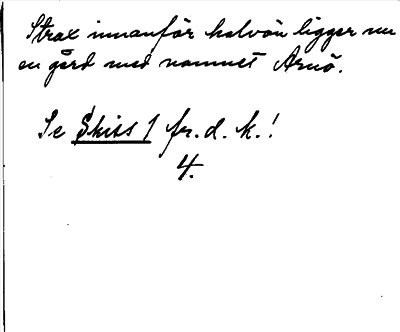 Strax innanför halvön ligger nu
en gård med namnet Arnö.
Se Skiss 1 fr. d. k.!
4.